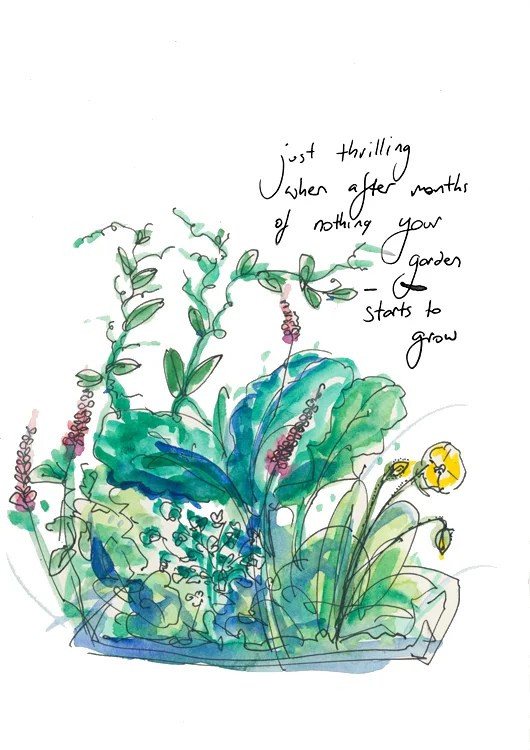 just thrilling
when after months
of nothing your
garden
— starts to
grow